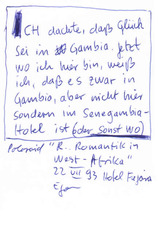 ICH dachte, daß Glück
sei in Gambia. Jetzt
wo ich hier bin, weiß
ich, daß es zwar in
Gambia, aber nicht hier
sondern im Senegambia-
Hotel ist (oder sonst wo)
Polaroid "R.. Romantik in
West-Afrika"
22 VII 93 Hotel Fajara